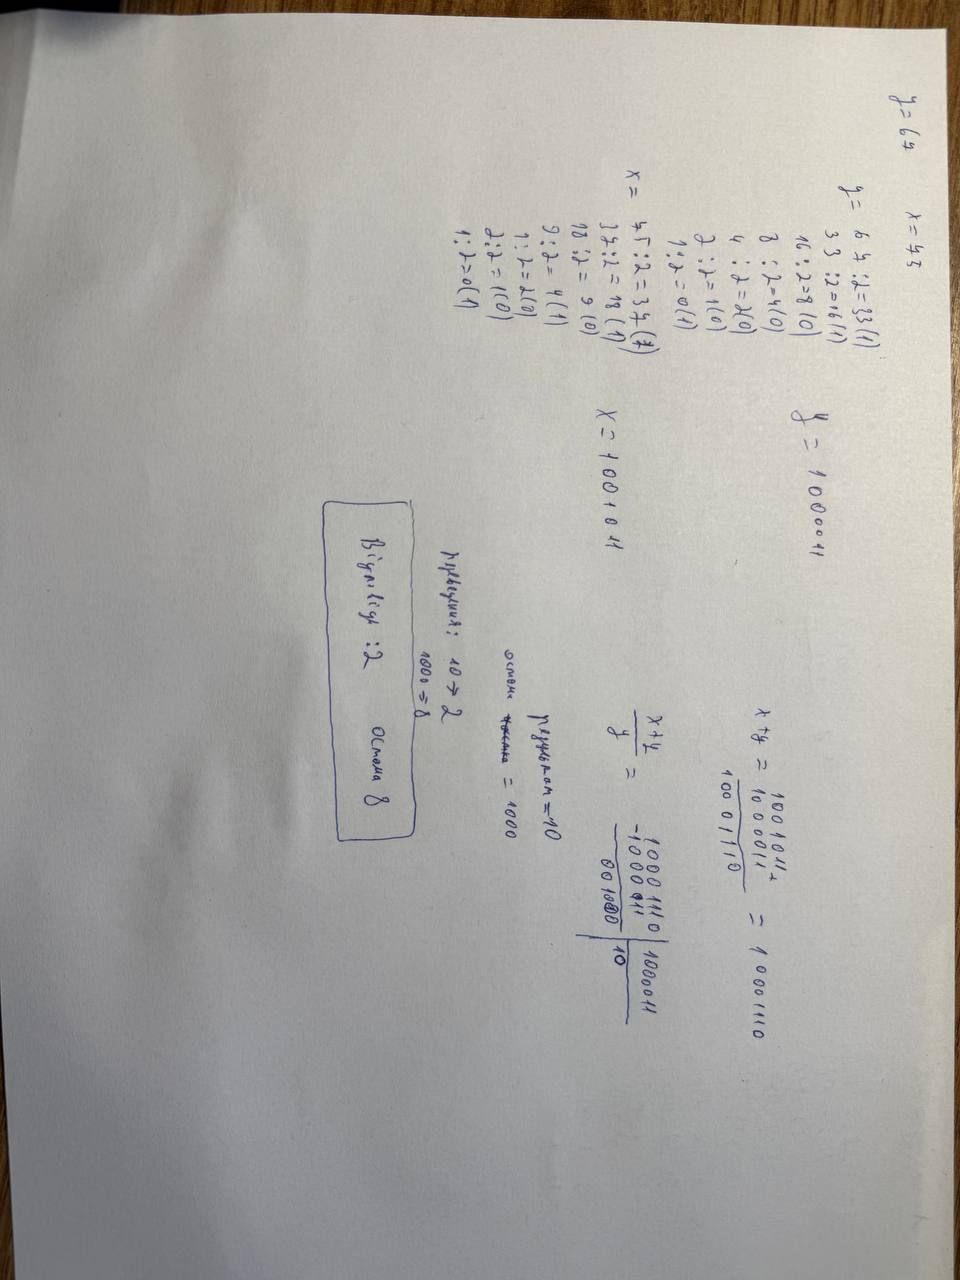 y = 67 x = 75
y = 67 : 2 = 33 (1)
33 : 2 = 16 (1)
16 : 2 = 8 (0)
8 : 2 = 4 (0)
4 : 2 = 2 (0)
2 : 2 = 1 (0)
1 : 2 = 0 (1)
y = 1000011
x = 75 : 2 = 37 (1)
37 : 2 = 18 (1)
18 : 2 = 9 (0)
9 : 2 = 4 (1)
1 : 2 = 2 (0)
2 : 2 = 1 (0)
1 : 2 = 0 (1)
x = 1001011
x + y = 1001011 + = 10001110
1000011
10001110
x + y / y = 10001110 | 1000011
- 1000011 | 10
001000
результат = 10
остача = 1000
переведення: 10 → 2
1000 = 8
Відповідь : 2 остача 8